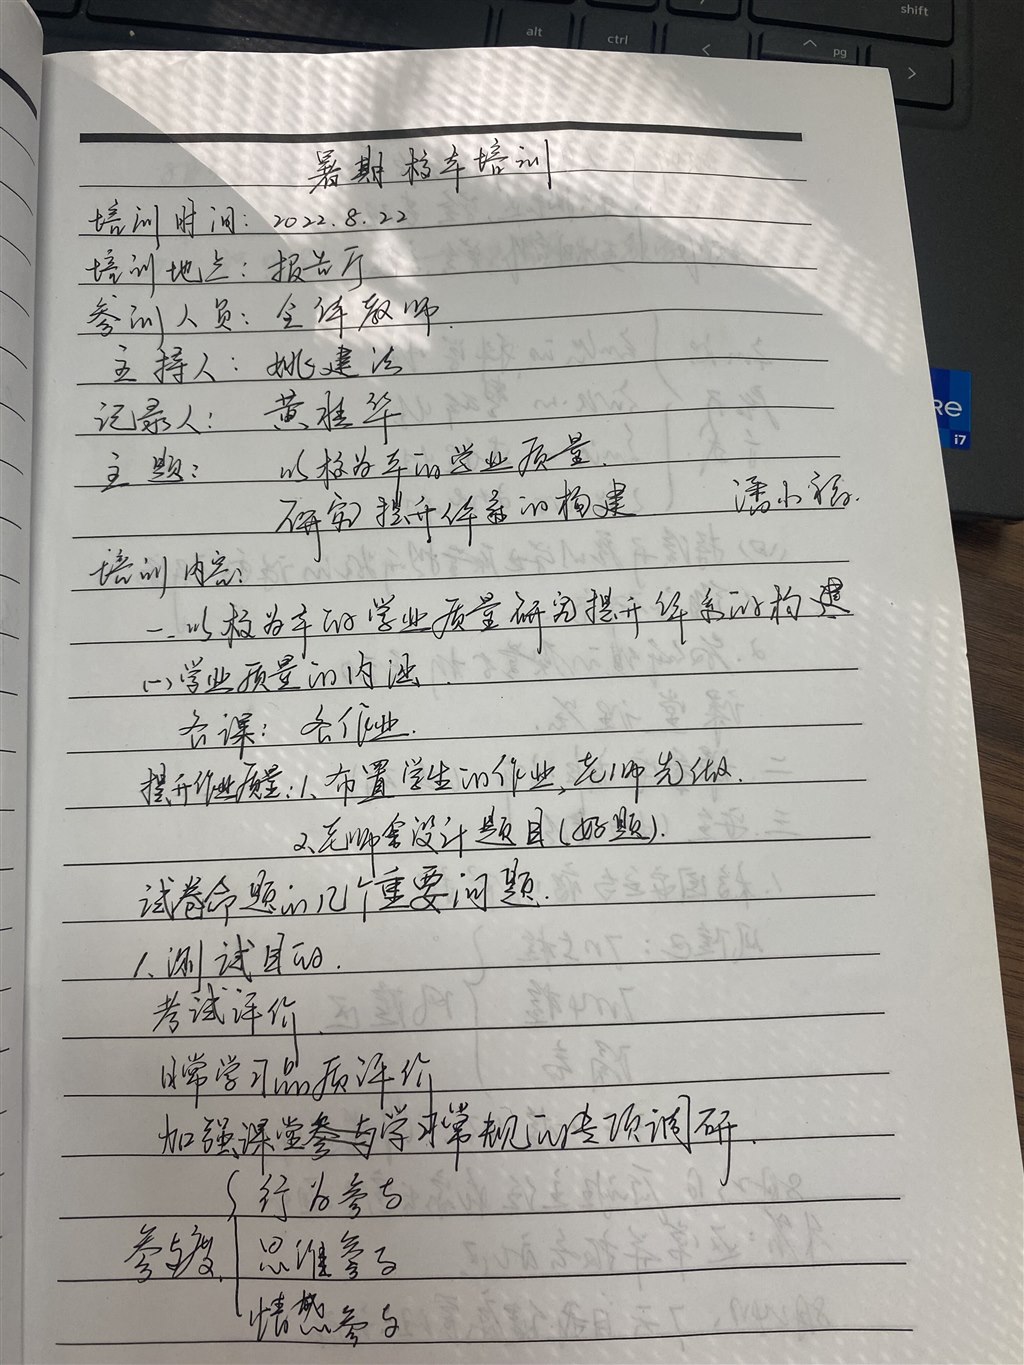 shift
alt
ctrl
pg
暑期校本培训
培训时间: 2022.8.22
培训地点: 报告厅
参训人员: 全体教师.
主持人: 姚建法
记录人: 黄桂华
主题: 以校为本的学业质量.
研究提升体系的构建
培训内容:
一.以校为本的学业质量研究提升体系的构建
(一)学业质量的内涵.
备课: 备作业.
提升作业质量:1、布置学生的作业,老师先做.
2、老师会设计题目(好题).
试卷命题的几个重要问题.
1、测试目的.
考试评价
日常学习品质评价
加强课堂学习常规的专项调研.
行为参与
参与度 思维参与
情感参与
i7